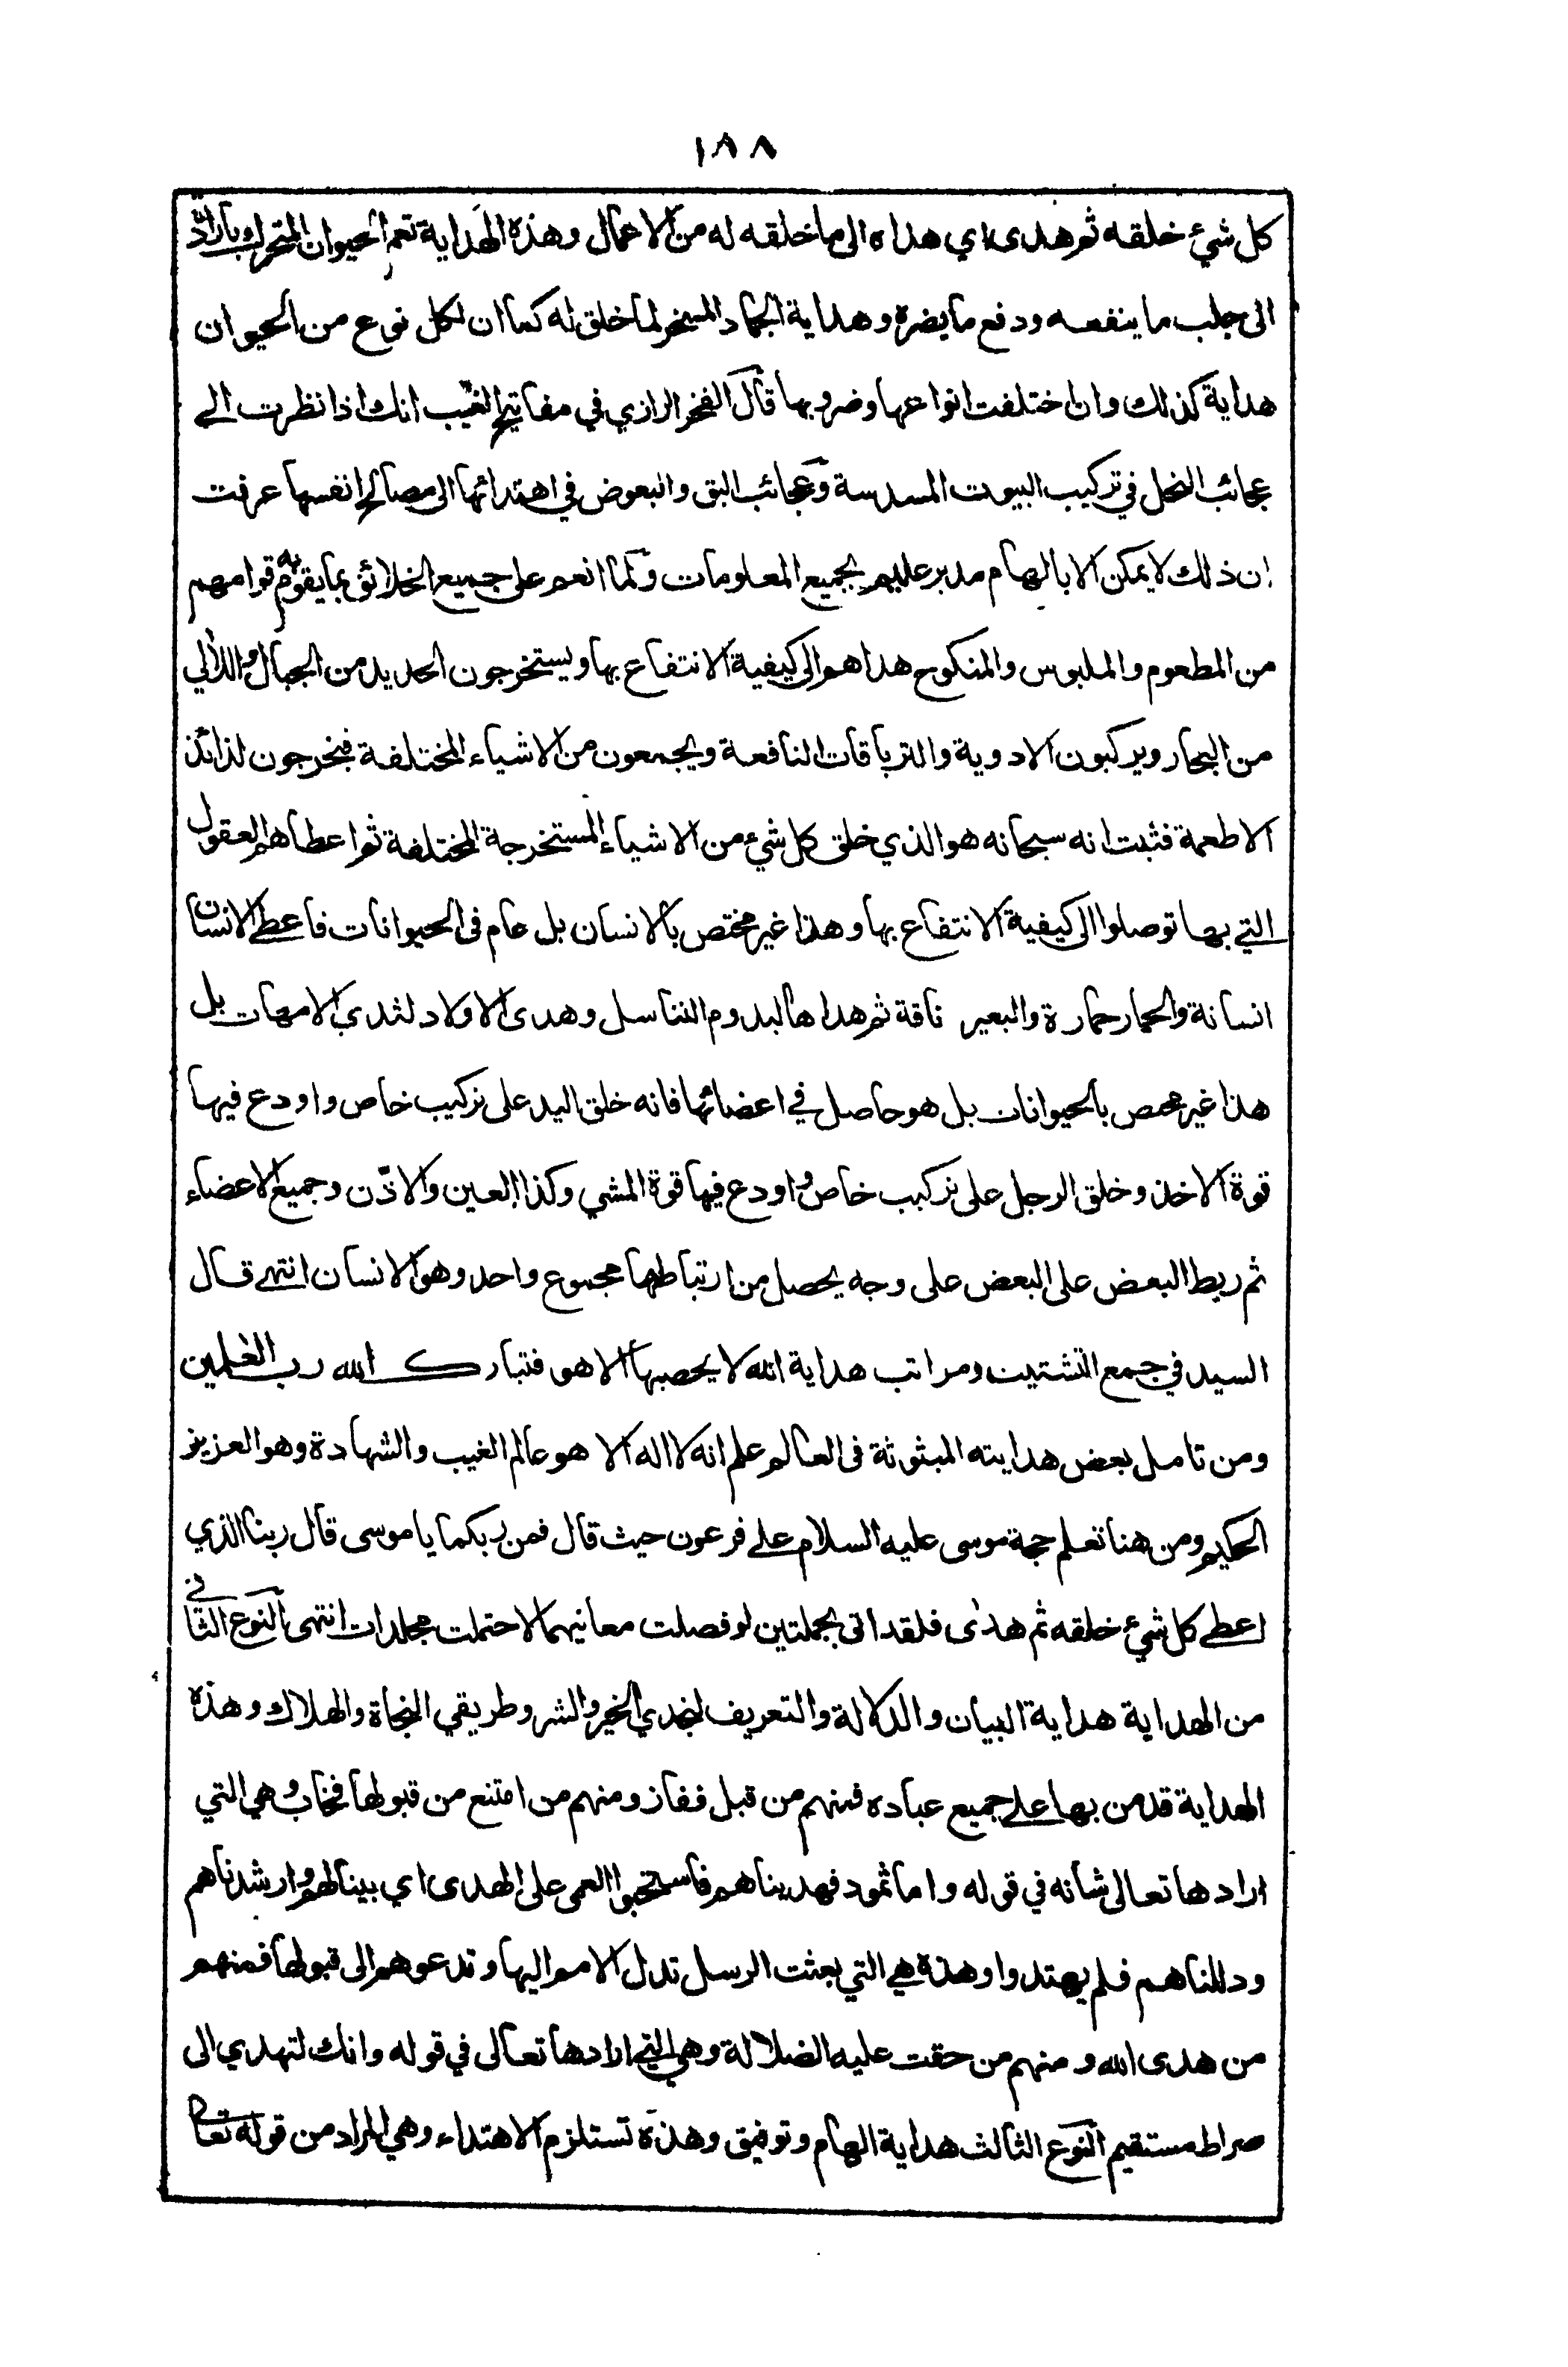 ١٨٨
كل شيء خلقه ثم هدى اي هداه الى ما خلقه له من الاعمال وهذه الهداية تعم الحيوان المتحرك بارادته
الى جلب ما ينفعه ودفع ما يضره وهداية الجماد المسخر لما خلق له كما ان لكل نوع من الحيوان
هداية كذلك وان اختلفت انواعها وضروبها قال الفخر الرازي في مفاتيح الغيب انك اذا نظرت الى
عجائب النحل في تركيب البيوت المسدسة وعجائب البق والبعوض في اهتدائها الى مصالح انفسها عرفت
ان ذلك لا يمكن الا بالهام مدبر عليم بجميع المعلومات ولما انعم على جميع الخلائق بما يقوم به قوامهم
من المطعوم والملبوس والمنكوح هداهم الى كيفية الانتفاع بها ويستخرجون الحديد من الجبال واللآلي
من البحار ويركبون الادوية والترياقات النافعة ويجمعون من الاشياء المختلفة فيخرجون لذائذ
الاطعمة فثبت انه سبحانه هو الذي خلق كل شيء من الاشياء المستخرجة المختلفة ثم اعطاهم العقول
التي بها توصلوا الى كيفية الانتفاع بها وهذا غير مختص بالانسان بل عام في الحيوانات فاعطى الانسان
انسانة والحمار حمارة والبعير ناقة ثم هداها لبدوم التناسل وهدى الاولاد لثدي الامهات بل
هذا غير مختص بالحيوانات بل هو حاصل في اعضائها فانه خلق اليد على تركيب خاص واودع فيها
قوة الاخذ وخلق الرجل على تركيب خاص واودع فيها قوة المشي وكذا العين والاذن وجميع الاعضاء
ثم ربط البعض على البعض على وجه يحصل من ارتباطها مجموع واحد وهو الانسان انتهى قال
السيد في جمع التشتيت ومراتب هداية الله لا يحصيها الا هو فتبارك الله رب العلمين
ومن تامل بعض هدايته المبثوثة في العالم علم انه لا اله الا هو عالم الغيب والشهادة وهو العزيز
الحكيم ومن هنا تعلم حجة موسى عليه السلام على فرعون حيث قال فمن ربكما يا موسى قال ربنا الذي
اعطى كل شيء خلقه ثم هدى فلقد اتى بجملتين لو فصلت معانيهما لاحتملت مجلدات انتهى النوع الثاني
من الهداية هداية البيان والدلالة والتعريف لنجدي الخير والشر وطريقي النجاة والهلاك وهذه
الهداية قد من بها على جميع عباده فمنهم من قبل ففاز ومنهم من امتنع من قبولها فخاب وهي التي
ارادها تعالى شانه في قوله واما ثمود فهديناهم فاستحبوا العمى على الهدى اي بينا لهم وارشدناهم
ودللناهم فلم يهتدوا وهذه هي التي بعثت الرسل تدل الامم اليها وتدعوهم الى قبولها فمنهم
من هدى الله ومنهم من حقت عليه الضلالة وهي التي ارادها تعالى في قوله وانك لتهدي الى
صراط مستقيم النوع الثالث هداية الهام وتوفيق وهذه تستلزم الاهتداء وهي المراد من قوله تعالى